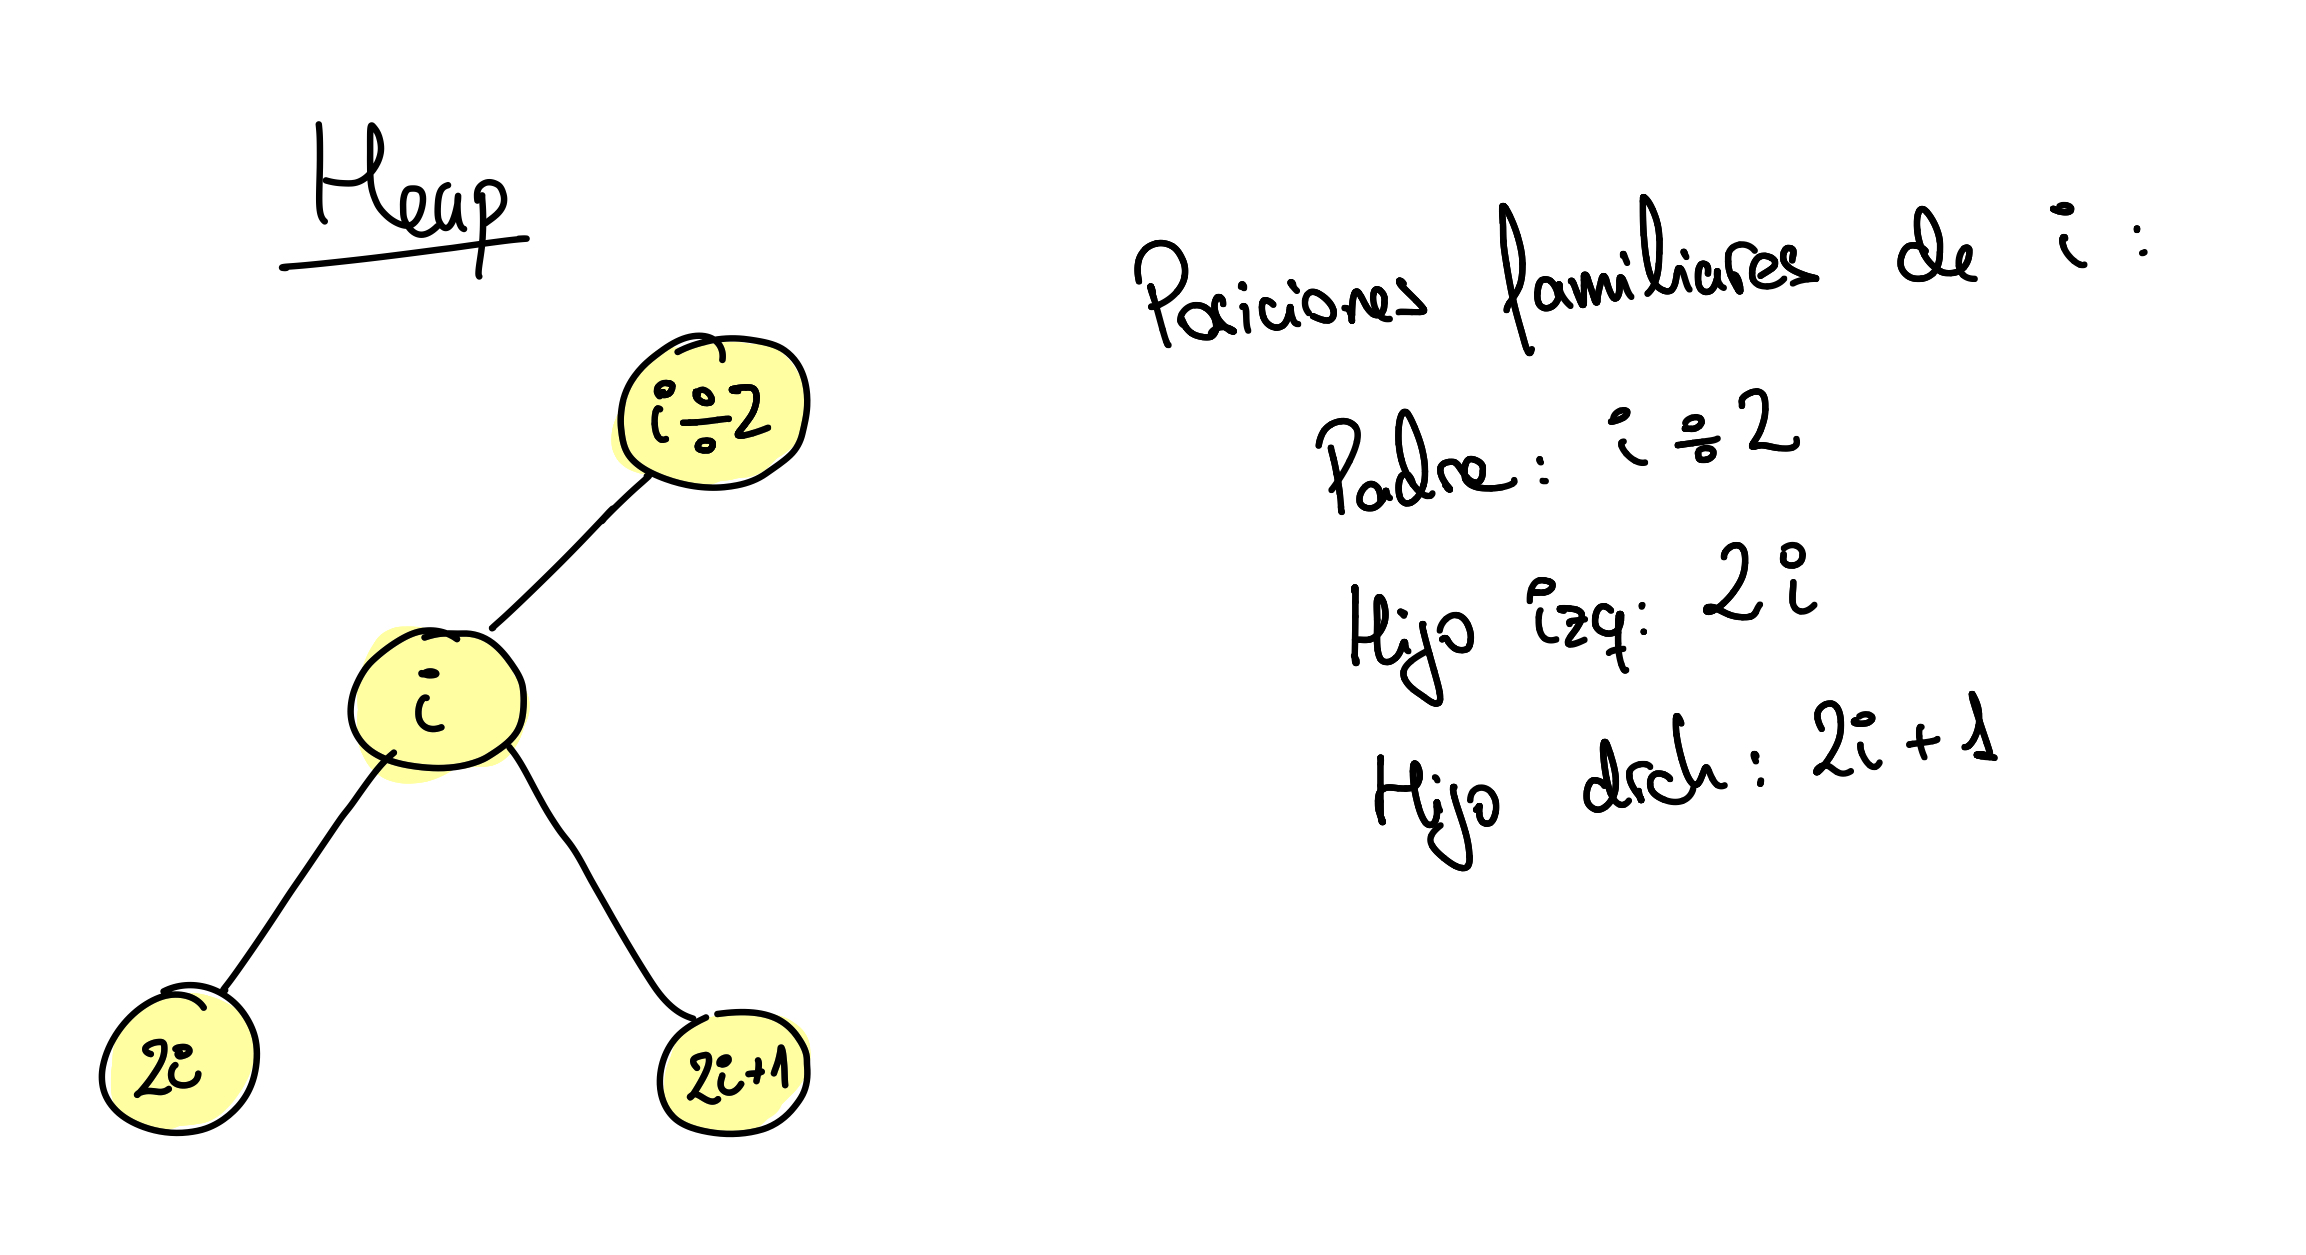 Heap
i÷2
i
2i
2i+1
Posiciones familiares de i:
Padre: i÷2
Hijo izq: 2i
Hijo drch: 2i+1